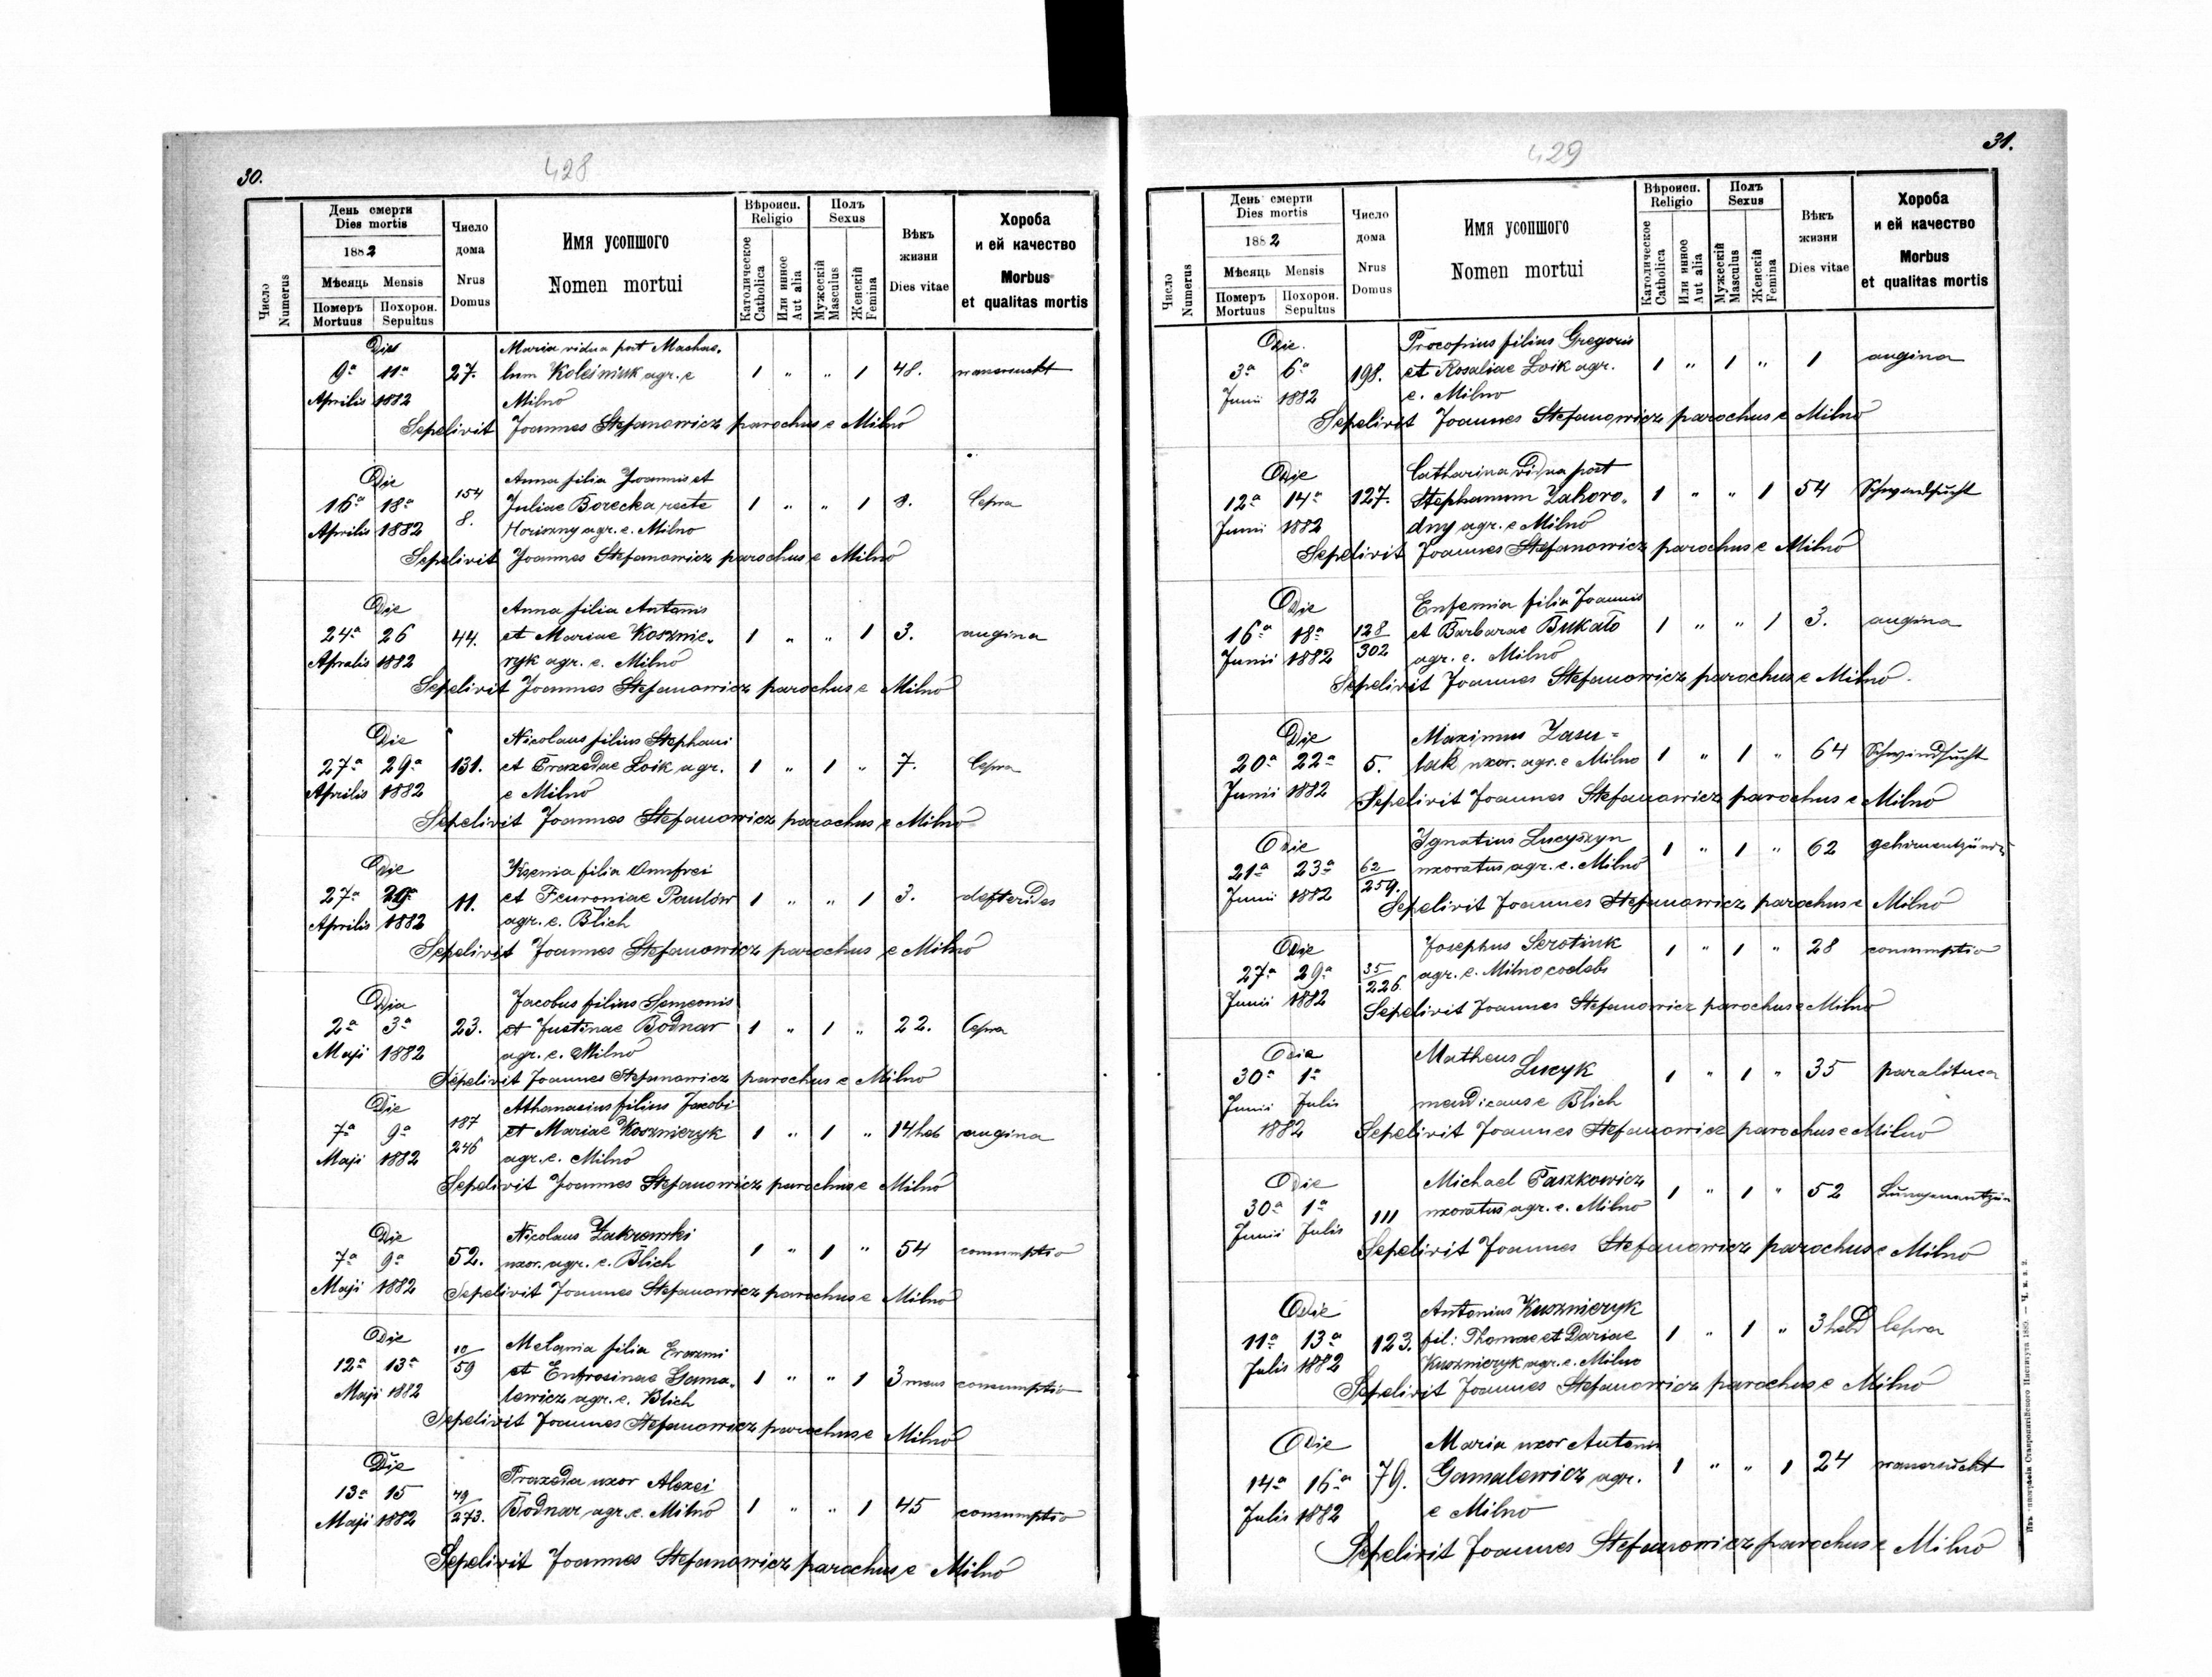 30.
428
Число
Numerus
День смерти
Dies mortis
1882
Мѣсяць Mensis
Померъ
Mortuus
Похорон.
Sepultus
Число
дома
Nrus
Domus
Имя усопшого
Nomen mortui
Вѣроисп.
Religio
Католическое
Catholica
Или инное
Aut alia
Полъ
Sexus
Мужескій
Masculus
Женскій
Femina
Вѣкъ
жизни
Dies vitae
Хороба
и ей качество
Morbus
et qualitas mortis
Die Maria vidua post Machae-
9ª 11ª 27. lum Koleśniuk agr. e 1 " " 1 48.
Aprilis 1882 Milno
Sepelivit Joannes Stefanowicz parochus e Milno
Die Anna filia Joannis et
16ª 18ª 154 8. Juliae Borecka recte 1 " " 1 8. lepra
Aprilis 1882 agr. e. Milno
Sepelivit Joannes Stefanowicz parochus e Milno
Die Anna filia Antonis
24ª 26 44. et Mariae Kosznie- 1 " " 1 3. angina
Aprilis 1882 ryk agr. e. Milno
Sepelivit Joannes Stefanowicz parochus e Milno
Die Nicolaus filius Stephani
27ª 29ª 131. et Praxedae Loik agr. 1 " 1 " 7. lepra
Aprilis 1882 e Milno
Sepelivit Joannes Stefanowicz parochus e Milno
Die Ksenia filia Onufrei
27ª 29ª 11. et Feuroniae Pawlów 1 " " 1 3. defterides
Aprilis 1882 agr. e. Blich
Sepelivit Joannes Stefanowicz parochus e Milno
Die Jacobus filius Semeonis
2ª 3ª 23. et Justinae Bodnar 1 " 1 " 22. lepra
Maji 1882 agr. e. Milno
Sepelivit Joannes Stefanowicz parochus e Milno
Die Athanasius filius Jacobi
7ª 9ª 187 246 et Mariae Kosznieryk 1 " 1 " 14 heb angina
Maji 1882 agr. e. Milno
Sepelivit Joannes Stefanowicz parochus e Milno
Die Nicolaus Zakrewski
7ª 9ª 52. uxor. agr. e. Blich 1 " 1 " 54 consumptio
Maji 1882 Sepelivit Joannes Stefanowicz parochus e Milno
Die Melania filia Erazmi
12ª 13ª 10/59 et Eufrosinae Gama- 1 " " 1 3 mens consumptio
Maji 1882 lewicz agr. e. Blich
Sepelivit Joannes Stefanowicz parochus e Milno
Die Praxeda uxor Alexei
13ª 15 49/273. Bodnar agr. e. Milno 1 " " 1 45 consumptio
Maji 1882
Sepelivit Joannes Stefanowicz parochus e Milno
31.
429
Число
Numerus
День смерти
Dies mortis
1882
Мѣсяць Mensis
Померъ
Mortuus
Похорон.
Sepultus
Число
дома
Nrus
Domus
Имя усопшого
Nomen mortui
Вѣроисп.
Religio
Католическое
Catholica
Или инное
Aut alia
Полъ
Sexus
Мужескій
Masculus
Женскій
Femina
Вѣкъ
жизни
Dies vitae
Хороба
и ей качество
Morbus
et qualitas mortis
Die. Procopius filius Gregoris
3ª 6ª 198. et Rosaliae Loik agr. 1 " 1 " 1 angina
Junii 1882 e. Milno
Sepelivit Joannes Stefanowicz parochus e Milno
Die Catharina vidua post
12ª 14ª 127. Stephanum Zahoro- 1 " " 1 54 Schwindsucht
Junii 1882 dny agr. e Milno
Sepelivit Joannes Stefanowicz parochus e Milno
Die Eufemia filia Joannis
16ª 18ª 128/302 et Barbarae Bukało 1 " " 1 3. angina
Junii 1882 agr. e. Milno
Sepelivit Joannes Stefanowicz parochus e Milno.
Die Maximus Zasu=
20ª 22ª 5. lak uxor. agr. e Milno 1 " 1 " 64 Schwindsucht
Junii 1882 Sepelivit Joannes Stefanowicz parochus e Milno
Die Ignatius Lucyszyn 1 " 1 " 62
21ª 23ª 62/259. uxoratus agr. e. Milno
Junii 1882 Sepelivit Joannes Stefanowicz parochus e Milno
Die Josephus Serotiuk 1 " 1 " 28 consumptio
27ª 29ª 35/226. agr. e. Milno coelebs
Junii 1882 Sepelivit Joannes Stefanowicz parochus e Milno
Die Matheus
30ª 1ª Lucyk 1 " 1 " 35
Junii Julis mendicans e Blich
1882 Sepelivit Joannes Stefanowicz parochus e Milno
Die Michael Paszkowicz 1 " 1 " 52
30ª 1ª 111 uxoratus agr. e. Milno
Junii Julis Sepelivit Joannes Stefanowicz parochus e Milno
Die Antonius Kusznieryk
11ª 13ª 123. fil: Thomae et Dariae 1 " 1 " 3 hebd lepra
Julis 1882 Kusznieryk agr. e. Milno
Sepelivit Joannes Stefanowicz parochus e Milno
Die Maria uxor Antonis
14ª 16ª 79. Gamalewicz agr. 1 " " 1 24
Julis 1882 e Milno
Sepelivit Joannes Stefanowicz parochus e Milno